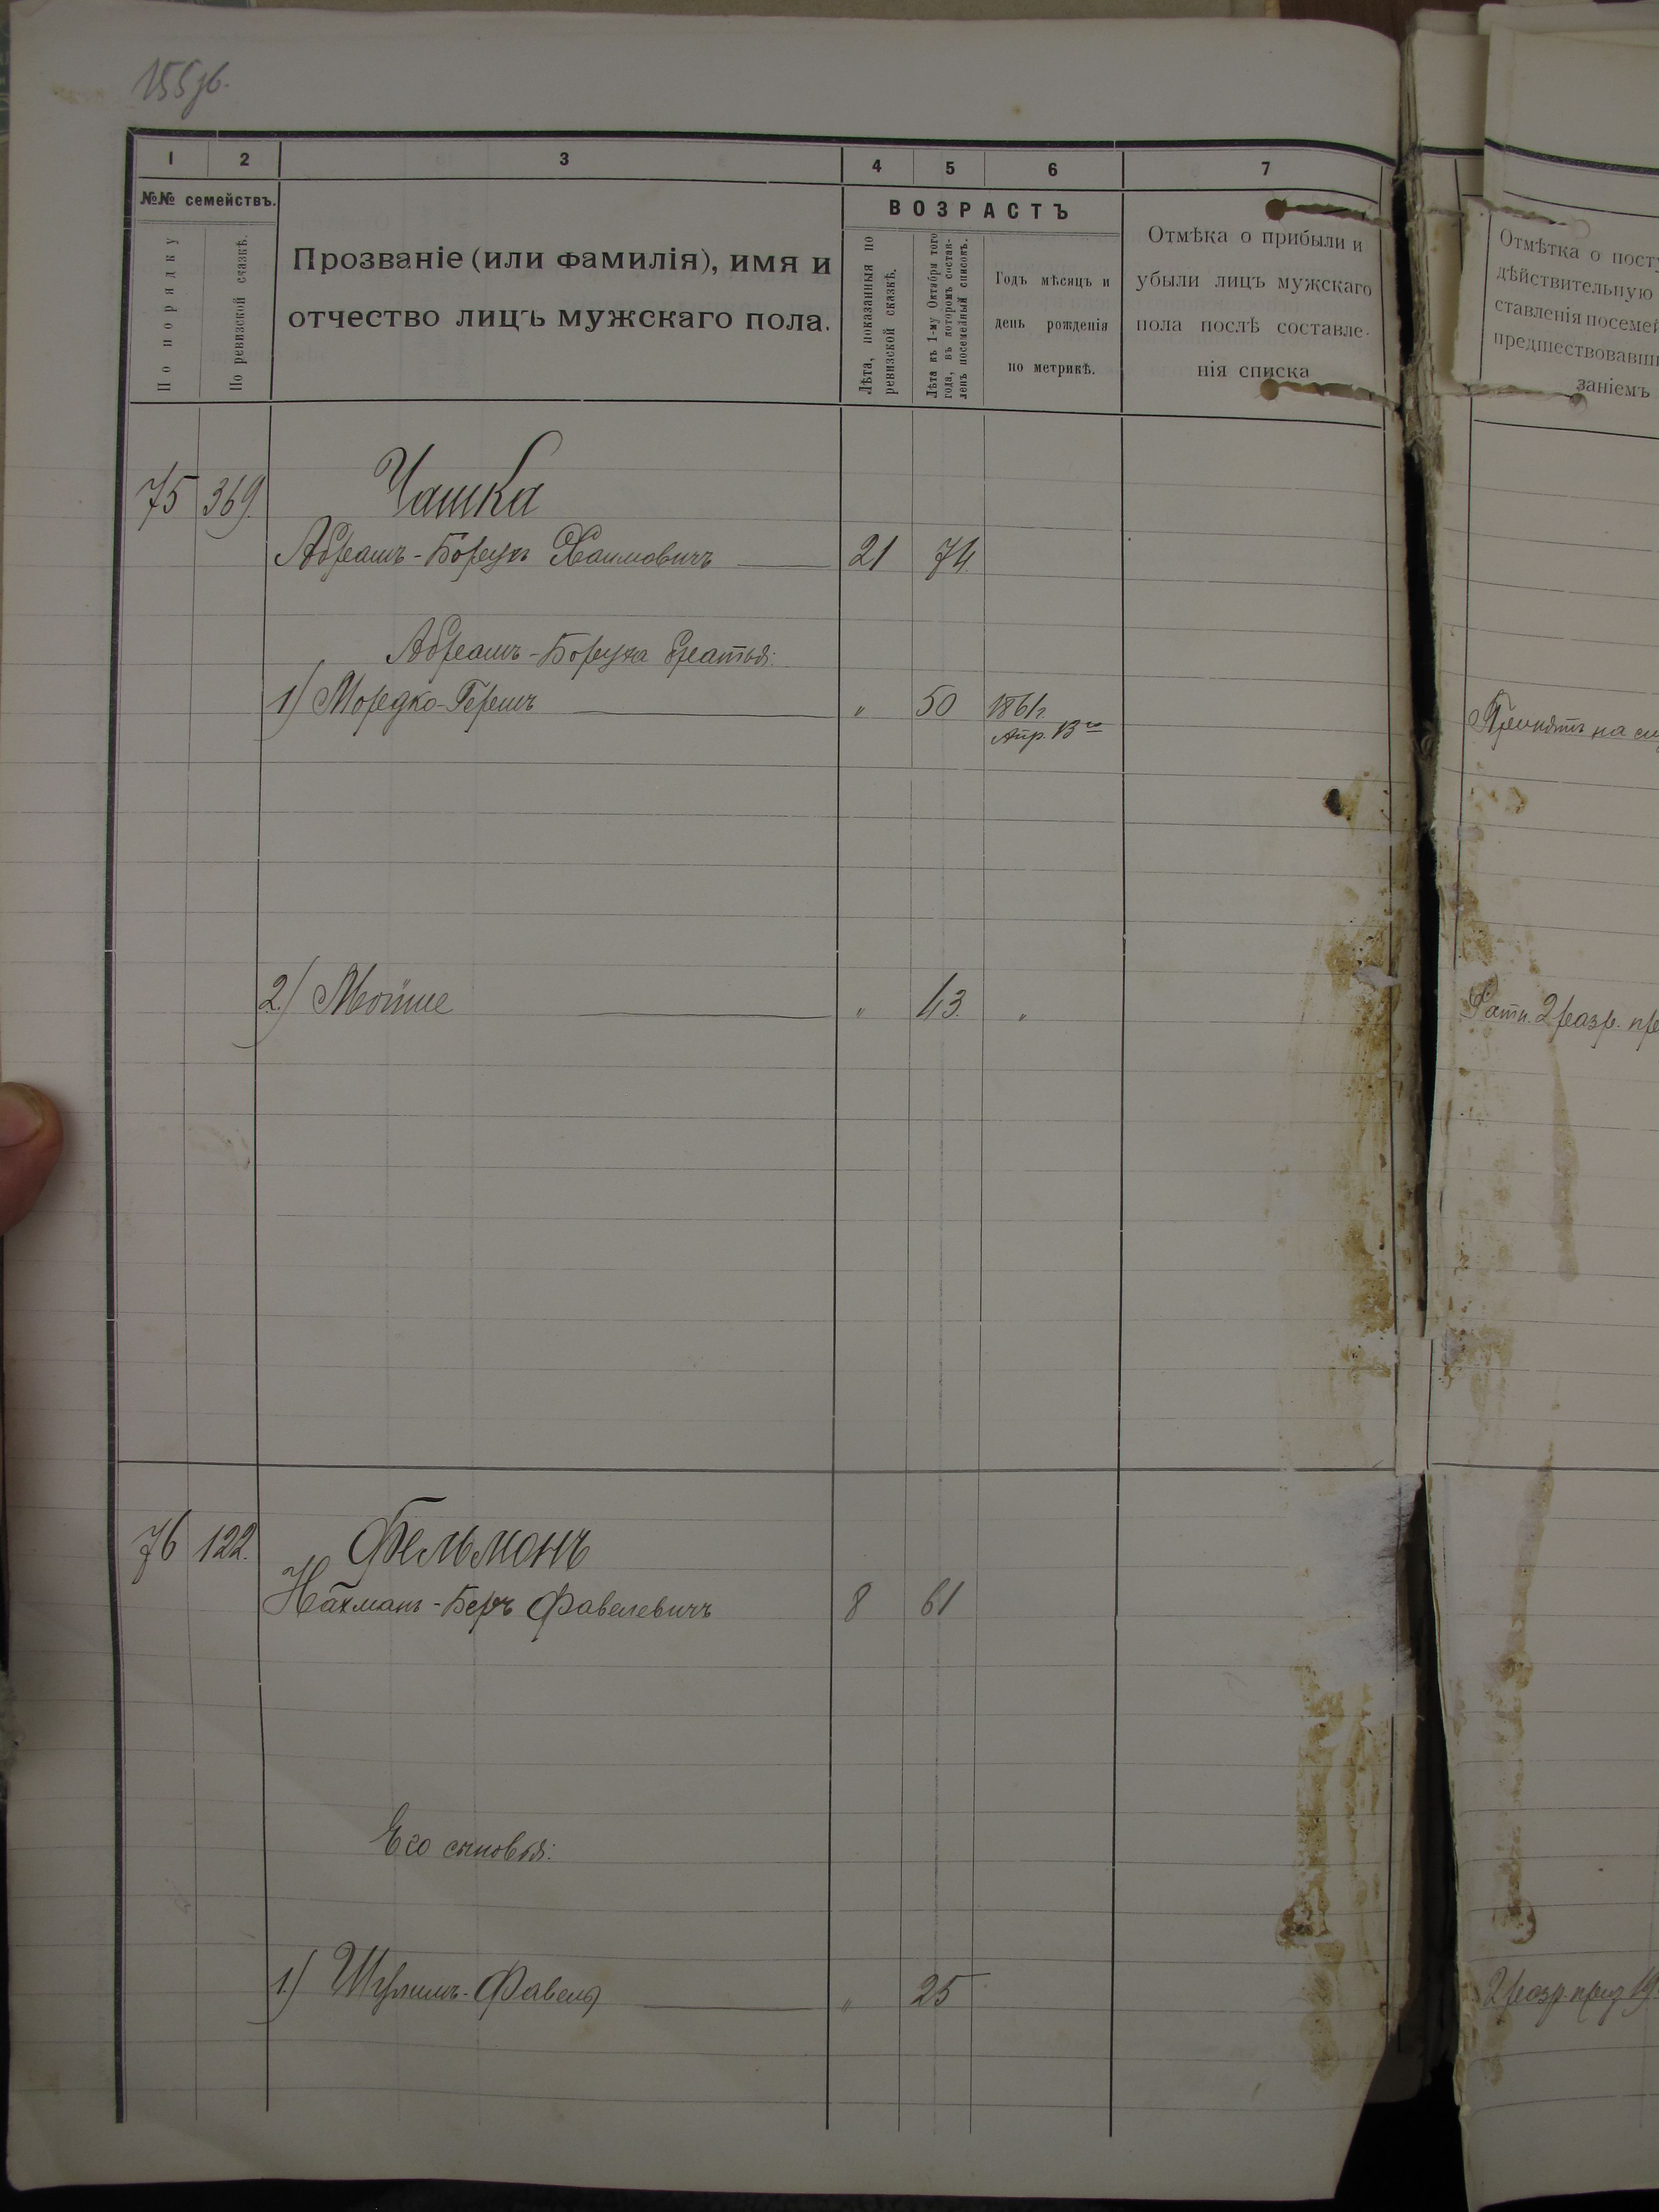 155 об.
1 2 3 4 5 6 7
№№ семействъ.
По порядку
По ревизской сказкѣ.
Прозваніе (или фамилія), имя и
отчество лицъ мужскаго пола.
ВОЗРАСТЪ
Лѣта, показанныя по
ревизской сказкѣ.
Лѣта къ 1-му Октября того
года, въ которомъ состав-
ленъ посемейный списокъ.
Годъ мѣсяцъ и
день рожденія
по метрикѣ.
Отмѣка о прибыли и
убыли лицъ мужскаго
пола послѣ составле-
нія списка
Отмѣтка о пост
дѣйствительную
ставленія посемей
предшествовавш
заніемъ
75 369. Чашка
Абрамъ-Борухъ Хаимовичъ 21 74.
Абрамъ-Боруха братья:
1) Мордко-Гершъ „ 50 1861г.
Апр. 13го
Принятъ на сл
2.) Мойше „ 43. „ Ратн. 2 разр. пр
76 122. Фельманъ
Нахманъ-Беръ Фавелевичъ 8 61
Его сыновья:
1.) Шулимъ-Фавель „ 25 2 разр. приз 19